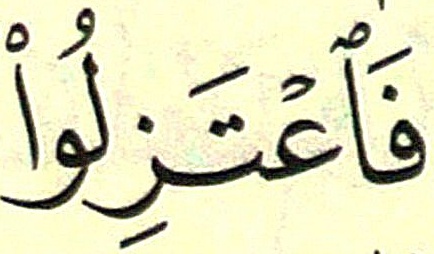 فَٱعْتَزِلُوا۟